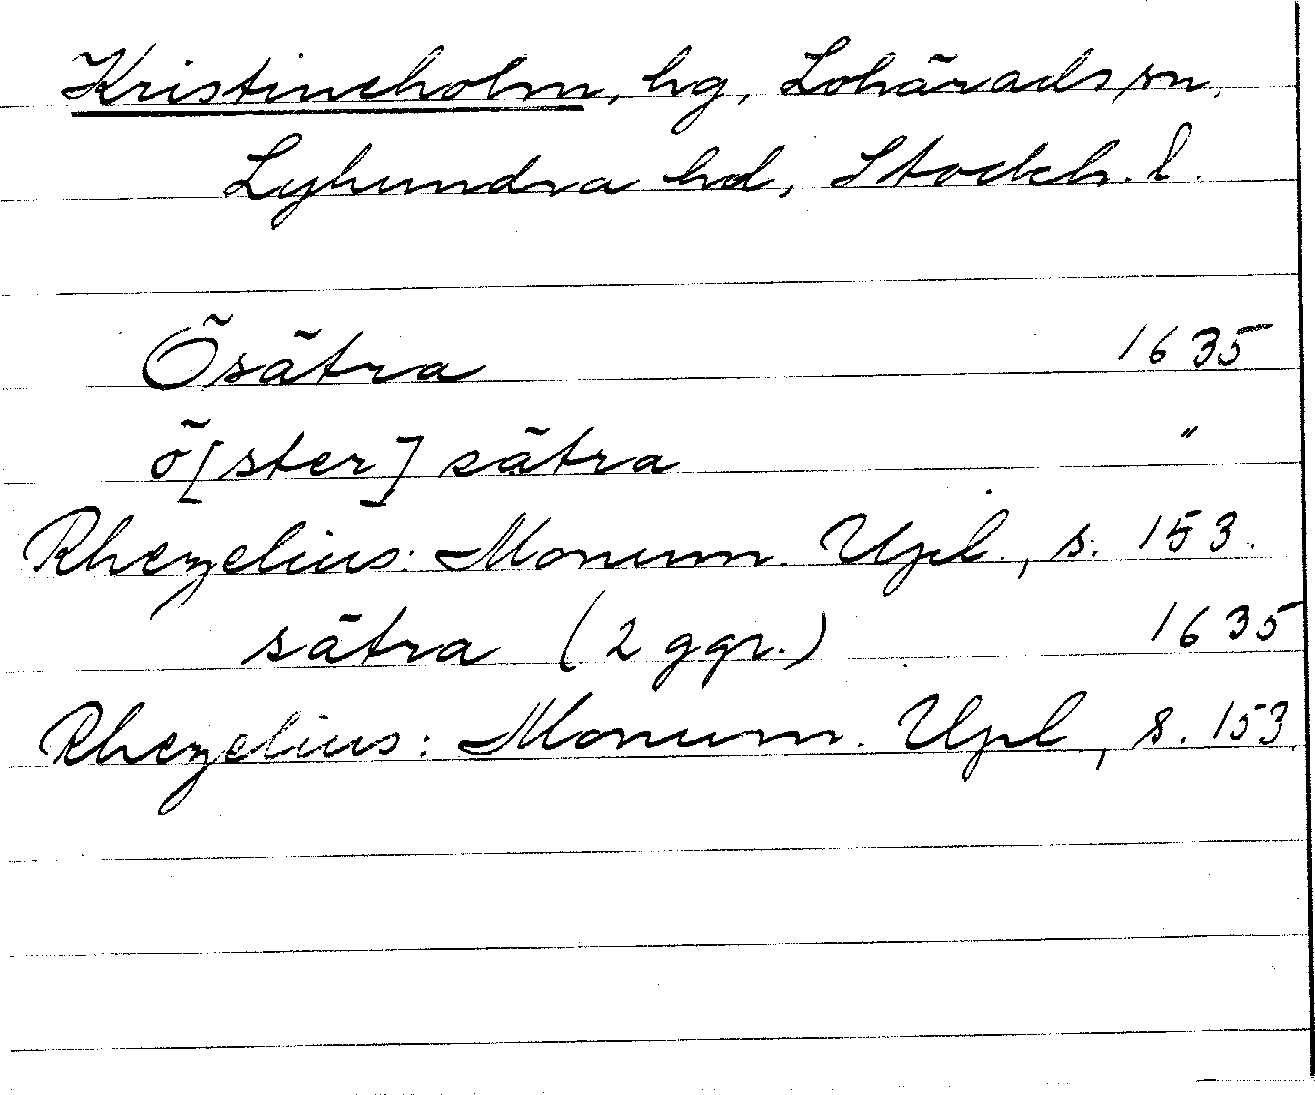 Kristineholm, hg, Lohärads sn,
Lyhundra hd, Stockh. l.
Ösätra 1635
ö[ster] sätra "
Rhezelius: Monum. Upl., s. 153.
sätra (2 ggr.) 1635
Rhezelius: Monum. Upl, s. 153.